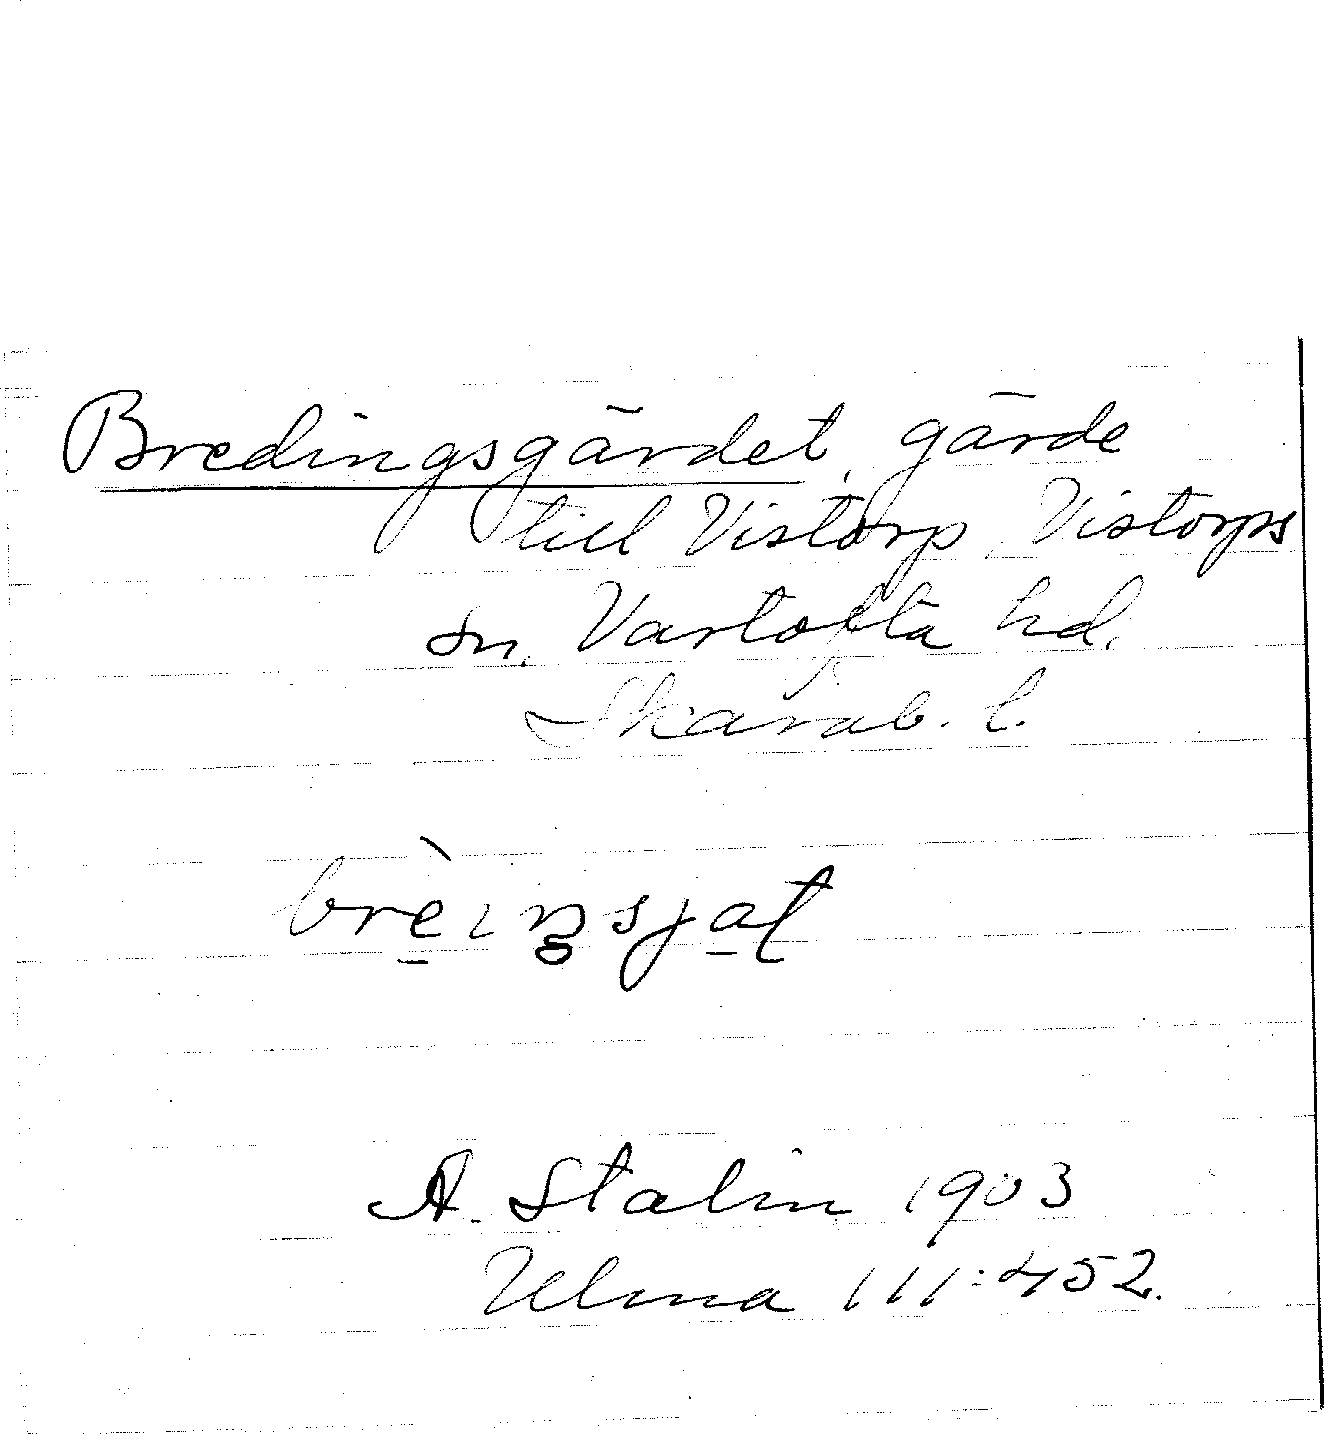 Bredingsgärdet, gärde
till Vistorp, Vistorps
sn, Vartofta hd.
Skarab. l.
A. Stalin 1903
Ulma 111:452.